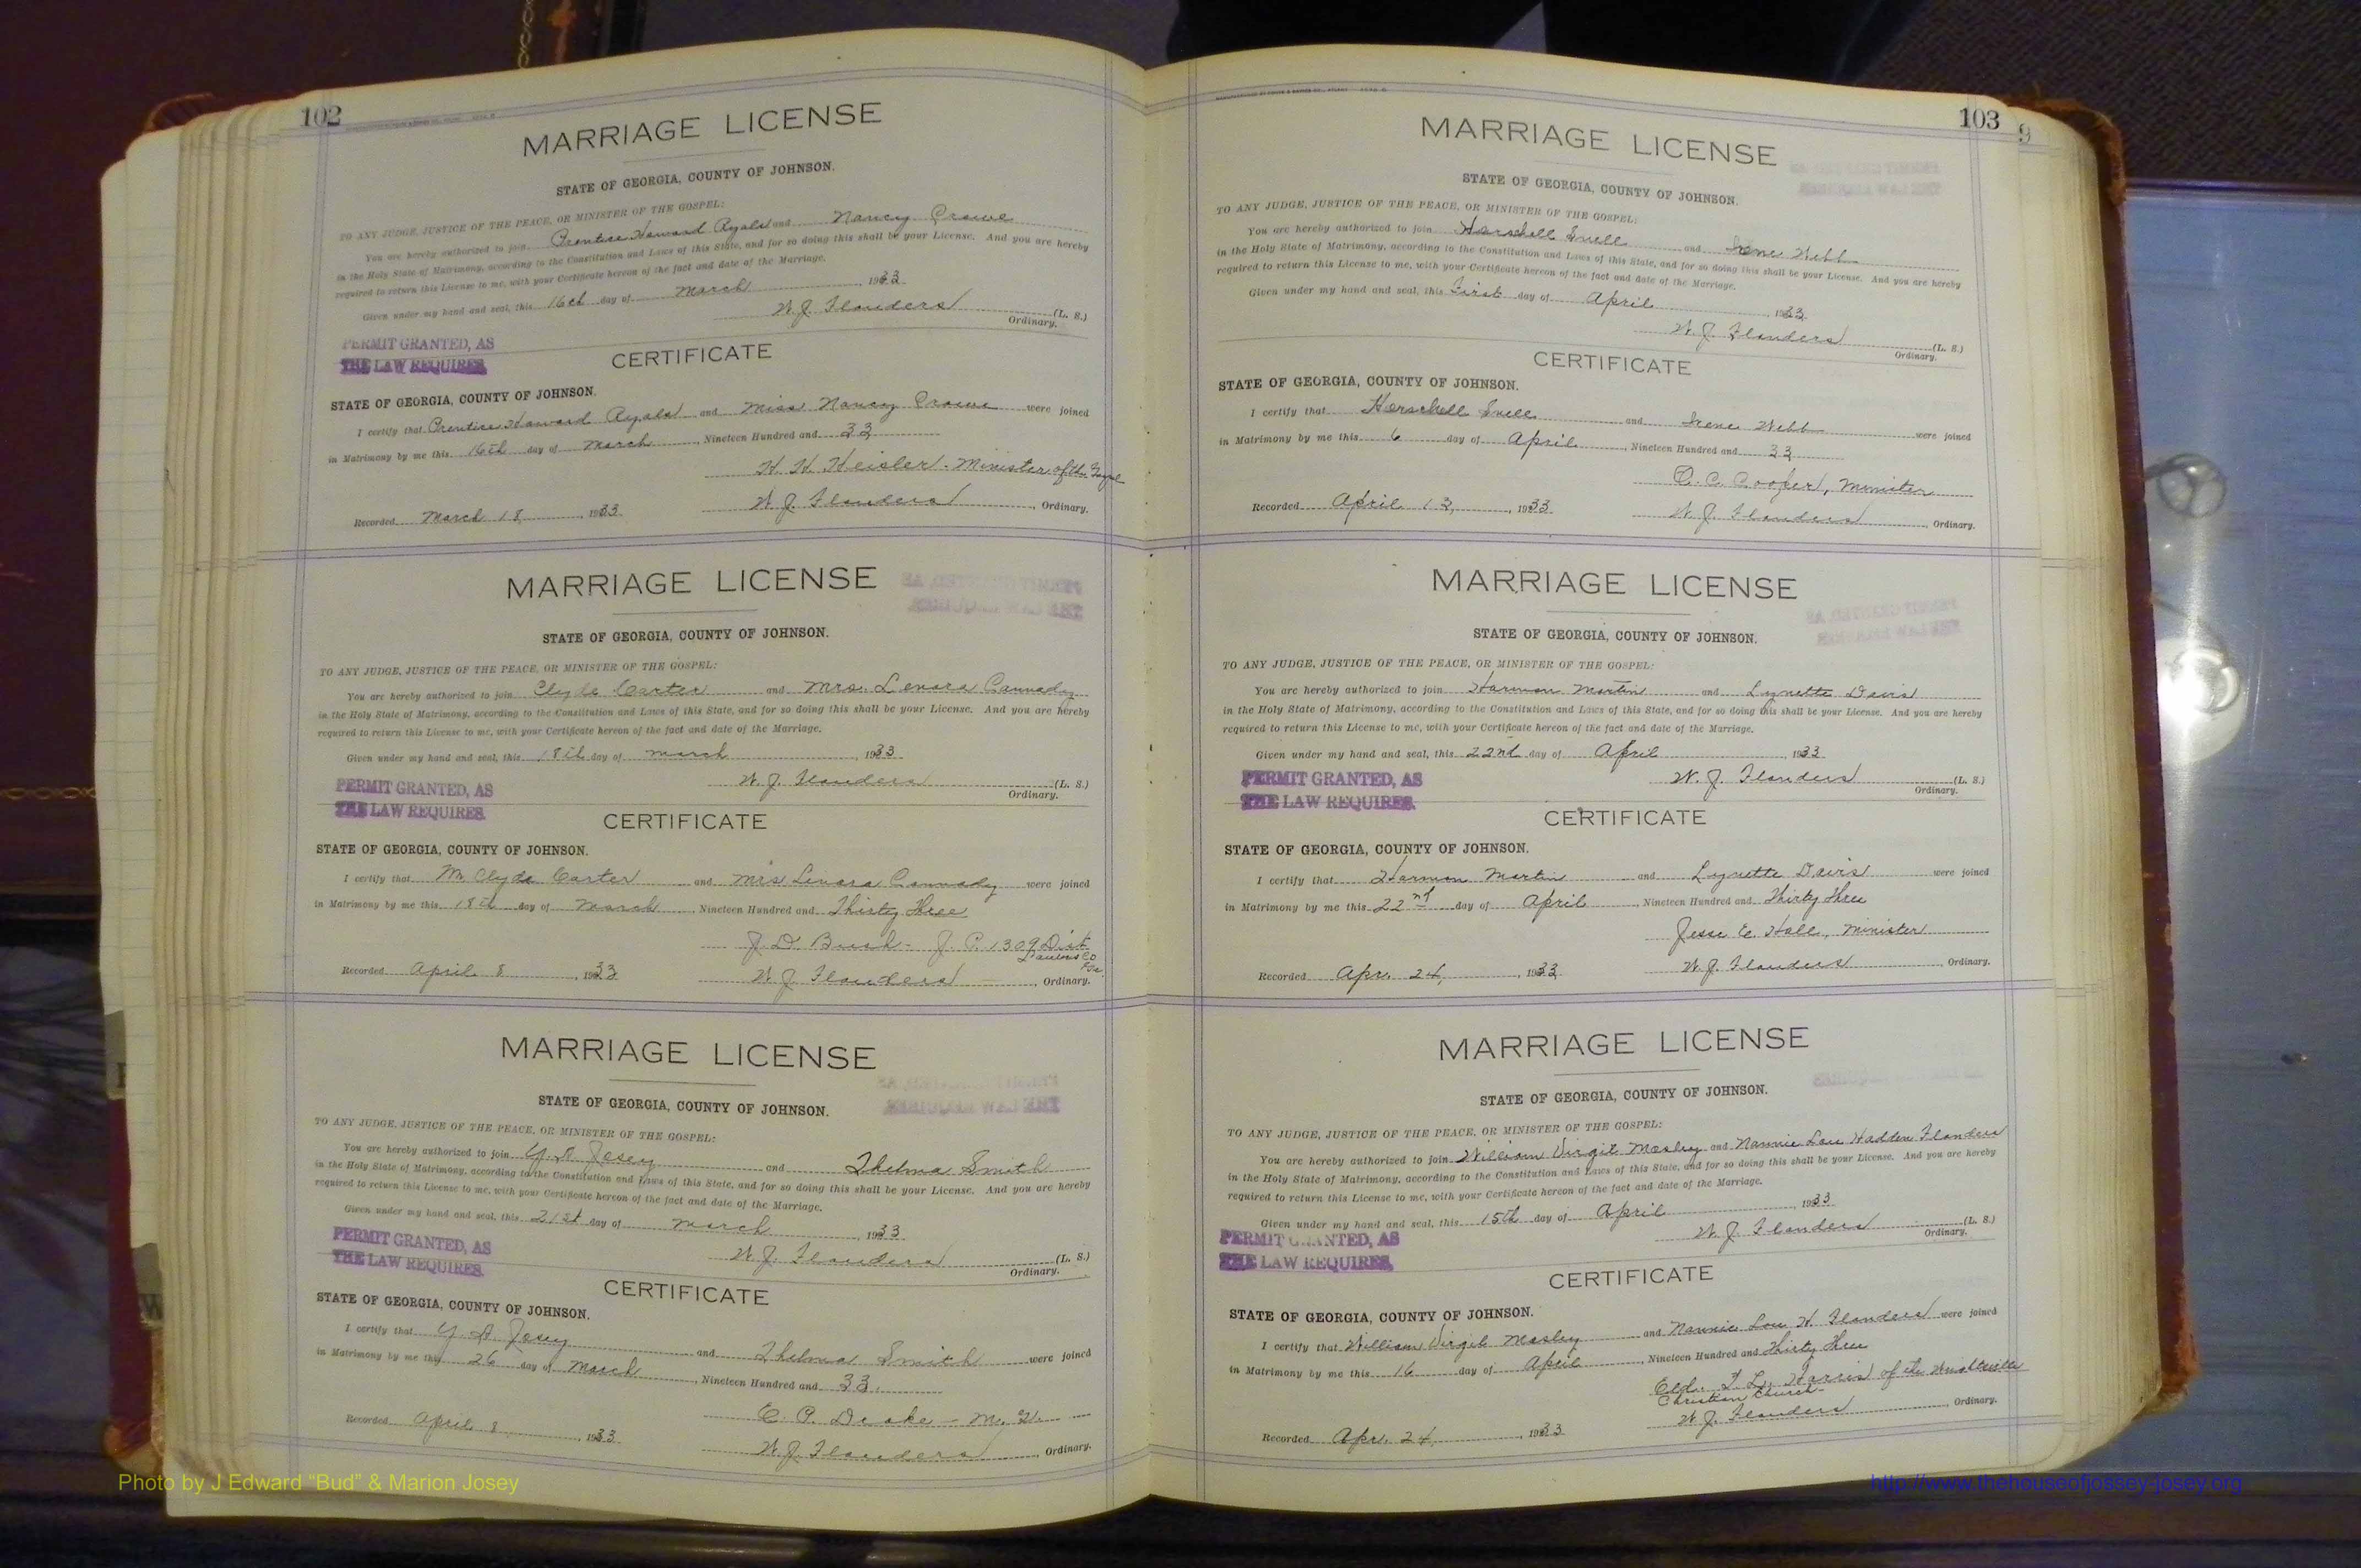 102
MARRIAGE LICENSE
STATE OF GEORGIA, COUNTY OF JOHNSON.
TO ANY JUDGE, JUSTICE OF THE PEACE, OR MINISTER OF THE GOSPEL:
You are hereby authorized to join Prentice Howard Ryals and Nancy Crowe
in the Holy State of Matrimony, according to the Constitution and Laws of this State, and for so doing this shall be your License. And you are hereby
required to return this License to me, with your Certificate hereon of the fact and date of the Marriage.
Given under my hand and seal, this 16th day of March, 1933
W. J. Flanders (L. S.)
Ordinary.
PERMIT GRANTED, AS
THE LAW REQUIRES.
CERTIFICATE
STATE OF GEORGIA, COUNTY OF JOHNSON.
I certify that Prentice Howard Ryals and Miss Nancy Crowe were joined
in Matrimony by me this 16th day of March, Nineteen Hundred and 33
H. H. Heisler - Minister of the
Recorded March 18, 1933 W. J. Flanders, Ordinary.
MARRIAGE LICENSE
STATE OF GEORGIA, COUNTY OF JOHNSON.
TO ANY JUDGE, JUSTICE OF THE PEACE, OR MINISTER OF THE GOSPEL:
You are hereby authorized to join Clyde Carter and Mrs. Lenora Cannady
in the Holy State of Matrimony, according to the Constitution and Laws of this State, and for so doing this shall be your License. And you are hereby
required to return this License to me, with your Certificate hereon of the fact and date of the Marriage.
Given under my hand and seal, this 18th day of March, 1933
W. J. Flanders (L. S.)
Ordinary.
PERMIT GRANTED, AS
THE LAW REQUIRES.
CERTIFICATE
STATE OF GEORGIA, COUNTY OF JOHNSON.
I certify that Clyde Carter and Mrs Lenora Cannady were joined
in Matrimony by me this 18th day of March, Nineteen Hundred and Thirty Three
J. D. Bush - J. P. 1309 Dist
Laurens Co
Ga.
Recorded April 8, 1933 W. J. Flanders, Ordinary.
MARRIAGE LICENSE
STATE OF GEORGIA, COUNTY OF JOHNSON.
TO ANY JUDGE, JUSTICE OF THE PEACE, OR MINISTER OF THE GOSPEL:
You are hereby authorized to join Y. D. Josey and Thelma Smith
in the Holy State of Matrimony, according to the Constitution and Laws of this State, and for so doing this shall be your License. And you are hereby
required to return this License to me, with your Certificate hereon of the fact and date of the Marriage.
Given under my hand and seal, this 21st day of March, 1933
W. J. Flanders (L. S.)
Ordinary.
PERMIT GRANTED, AS
THE LAW REQUIRES.
CERTIFICATE
STATE OF GEORGIA, COUNTY OF JOHNSON.
I certify that Y. D. Josey and Thelma Smith were joined
in Matrimony by me this 26 day of March, Nineteen Hundred and 33.
E. P. Drake - M. G.
Recorded April 8, 1933 W. J. Flanders, Ordinary.
103
9
MARRIAGE LICENSE
STATE OF GEORGIA, COUNTY OF JOHNSON.
TO ANY JUDGE, JUSTICE OF THE PEACE, OR MINISTER OF THE GOSPEL:
You are hereby authorized to join Herschell Snell and Irene Webb
in the Holy State of Matrimony, according to the Constitution and Laws of this State, and for so doing this shall be your License. And you are hereby
required to return this License to me, with your Certificate hereon of the fact and date of the Marriage.
Given under my hand and seal, this First day of April, 1933
W. J. Flanders (L. S.)
Ordinary.
CERTIFICATE
STATE OF GEORGIA, COUNTY OF JOHNSON.
I certify that Herschell Snell and Irene Webb were joined
in Matrimony by me this 6 day of April, Nineteen Hundred and 33
C. C. Cooper, Minister
Recorded April 13, 1933 W. J. Flanders, Ordinary.
MARRIAGE LICENSE
STATE OF GEORGIA, COUNTY OF JOHNSON.
TO ANY JUDGE, JUSTICE OF THE PEACE, OR MINISTER OF THE GOSPEL:
You are hereby authorized to join Harmon Martin and Lynette Davis
in the Holy State of Matrimony, according to the Constitution and Laws of this State, and for so doing this shall be your License. And you are hereby
required to return this License to me, with your Certificate hereon of the fact and date of the Marriage.
Given under my hand and seal, this 22nd day of April, 1933
W. J. Flanders (L. S.)
Ordinary.
PERMIT GRANTED, AS
THE LAW REQUIRES.
CERTIFICATE
STATE OF GEORGIA, COUNTY OF JOHNSON.
I certify that Harmon Martin and Lynette Davis were joined
in Matrimony by me this 22nd day of April, Nineteen Hundred and Thirty Three
Jesse E. Hall, Minister
Recorded Apr. 24, 1933 W. J. Flanders, Ordinary.
MARRIAGE LICENSE
STATE OF GEORGIA, COUNTY OF JOHNSON.
TO ANY JUDGE, JUSTICE OF THE PEACE, OR MINISTER OF THE GOSPEL:
You are hereby authorized to join William Virgil Mosley and Nannie Lou Hadden Flanders
in the Holy State of Matrimony, according to the Constitution and Laws of this State, and for so doing this shall be your License. And you are hereby
required to return this License to me, with your Certificate hereon of the fact and date of the Marriage.
Given under my hand and seal, this 15th day of April, 1933
W. J. Flanders (L. S.)
Ordinary.
PERMIT GRANTED, AS
THE LAW REQUIRES.
CERTIFICATE
STATE OF GEORGIA, COUNTY OF JOHNSON.
I certify that William Virgil Mosley and Nannie Lou H. Flanders were joined
in Matrimony by me this 16 day of April, Nineteen Hundred and Thirty Three
Eld. T. L. Harris of the Wrightsville
Christian Church
W. J. Flanders, Ordinary.
Recorded Apr. 24, 1933
Photo by J Edward "Bud" & Marion Josey
http://www.thehouseofjossey-josey.org